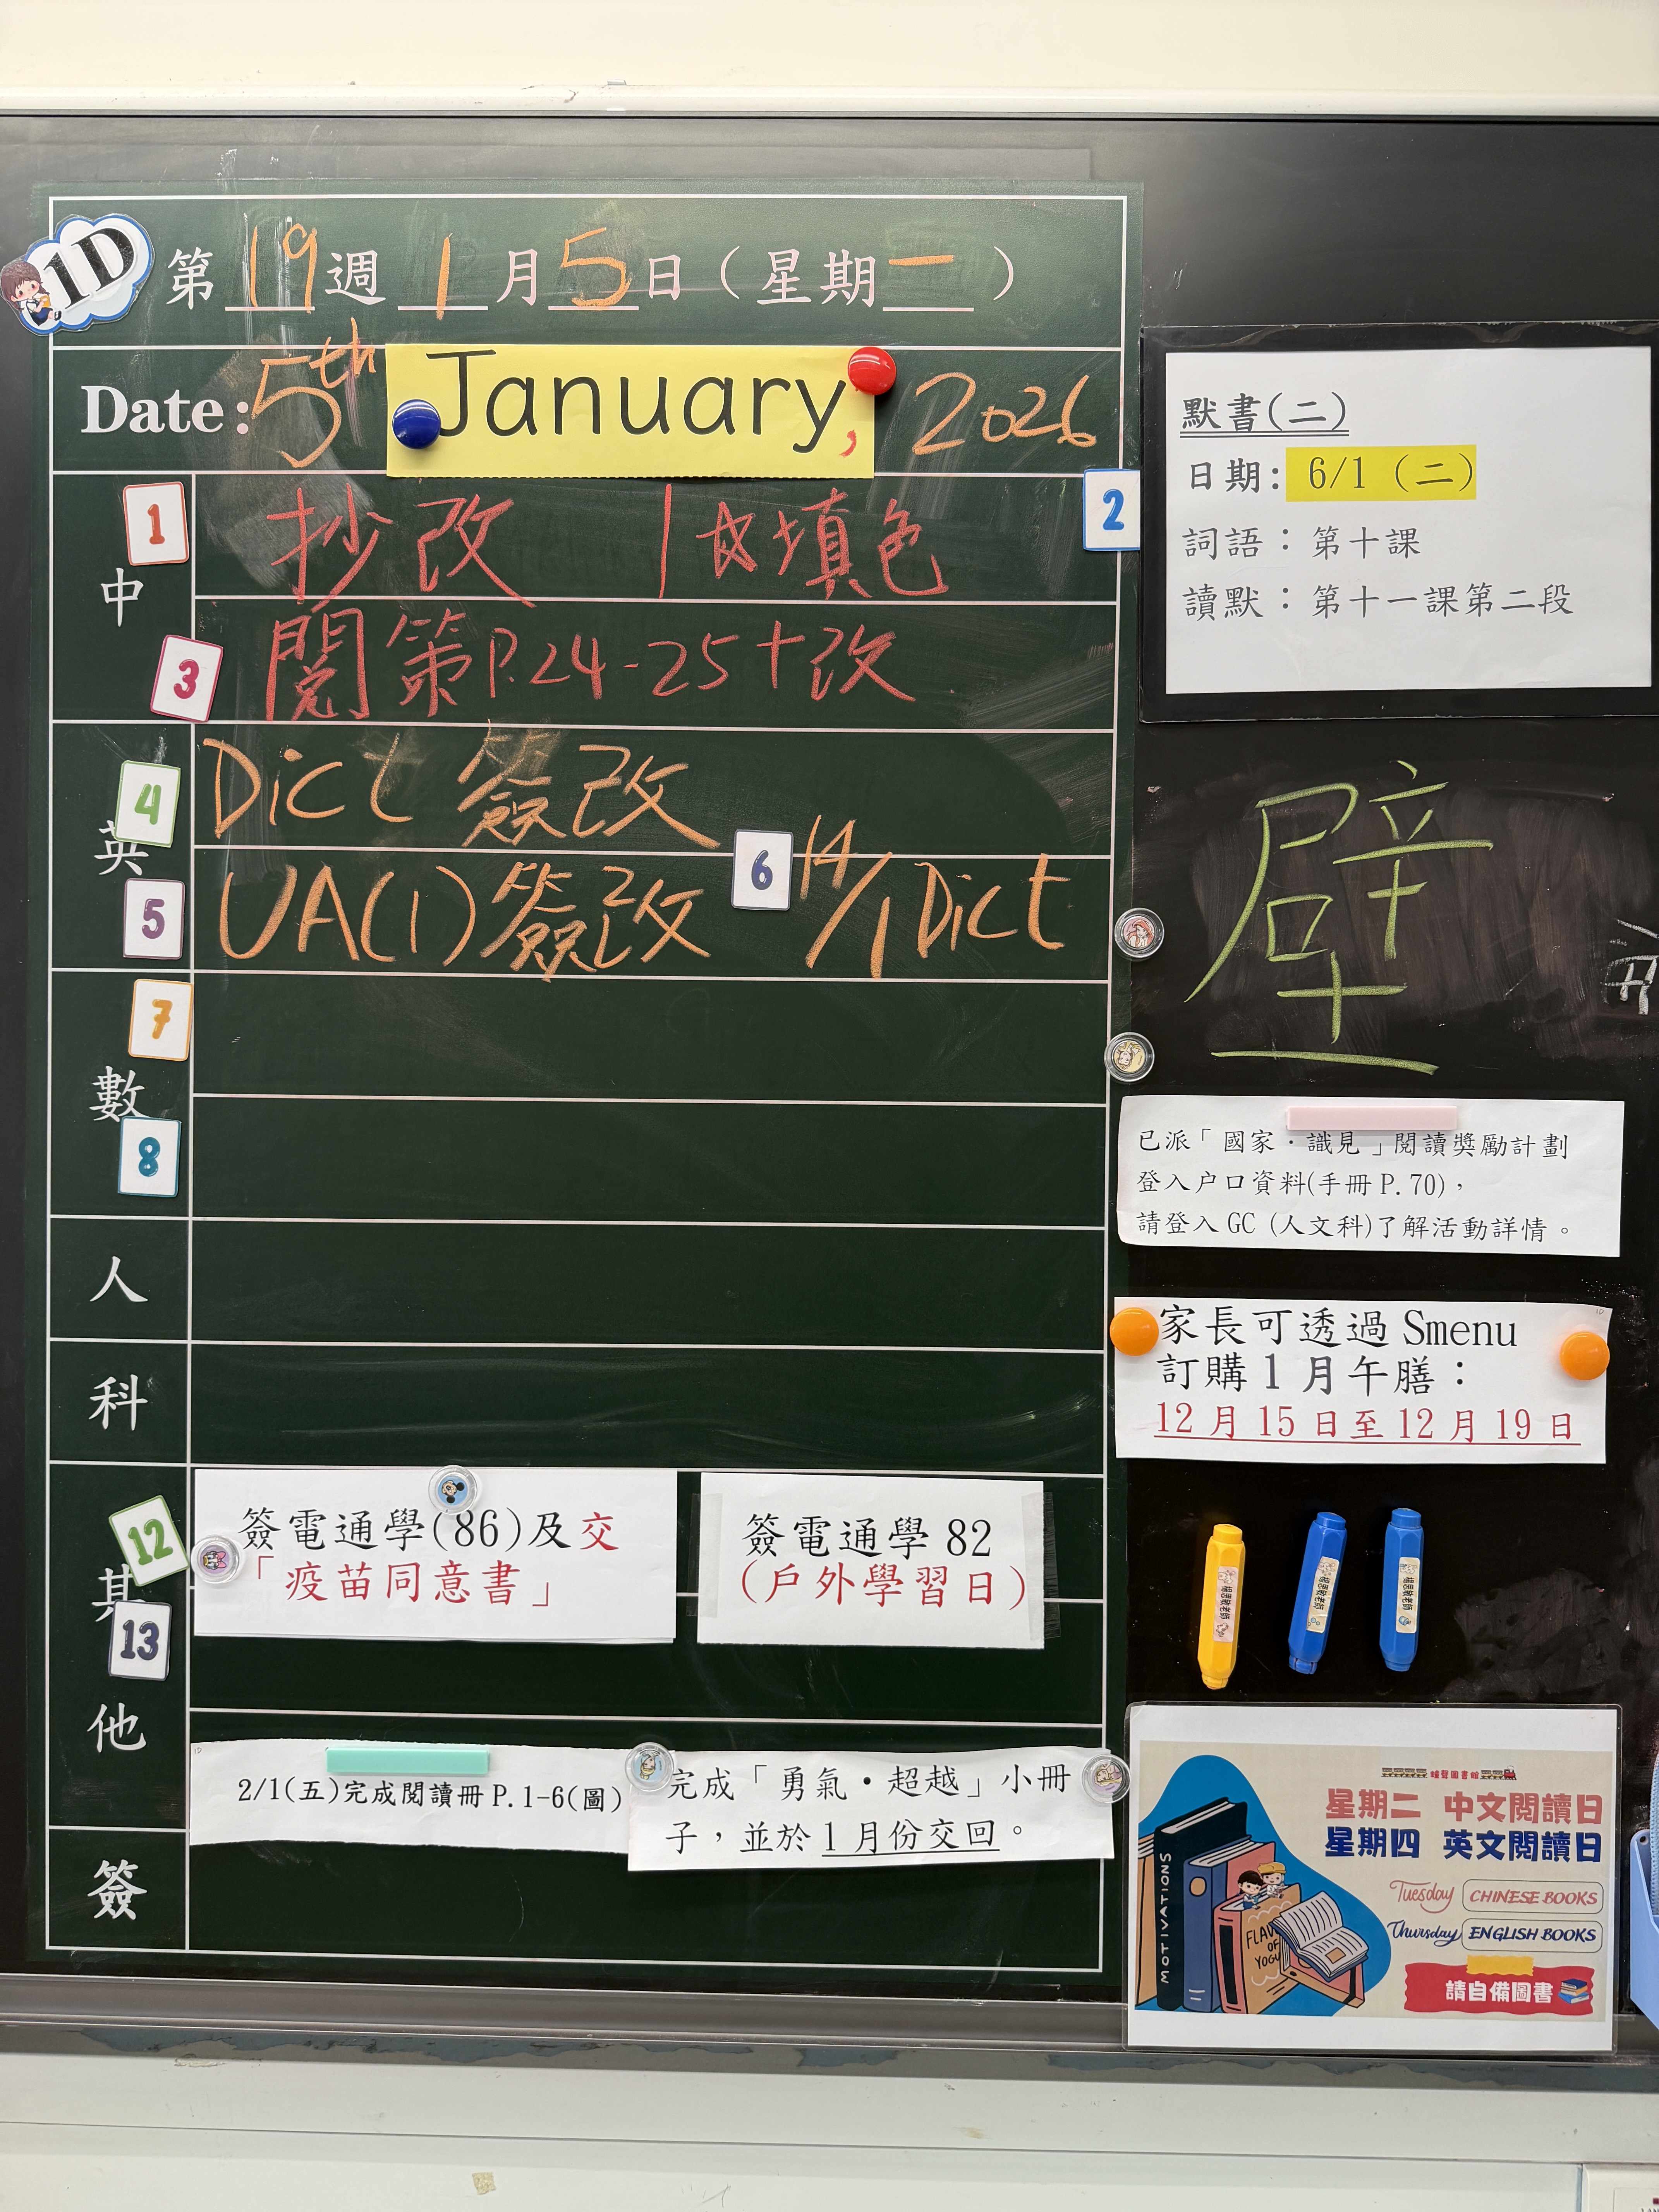 1D
第19週 1月5日（星期一）
Date: 5th January, 2026
中
1
抄改 1✩填色
2
3
閱策P.24-25+改
英
4
Dict 簽改
5
UA(1) 簽改
6
14/1 Dict
數
7
8
人
科
其他
12
簽電通學(86)及交
「疫苗同意書」
簽電通學 82
(戶外學習日)
13
2/1(五)完成閱讀冊P.1-6(圖)
完成「勇氣・超越」小冊
子，並於1月份交回。
簽
默書(二)
日期: 6/1 (二)
詞語：第十課
讀默：第十一課第二段
壁
已派「國家・識見」閱讀獎勵計劃
登入户口資料(手冊 P.70)，
請登入 GC (人文科)了解活動詳情。
家長可透過 Smenu
訂購 1 月午膳：
12 月 15 日至 12 月 19 日
星期二 中文閱讀日
星期四 英文閱讀日
Tuesday CHINESE BOOKS
Thursday ENGLISH BOOKS
請自備圖書
MOTIVATIONS